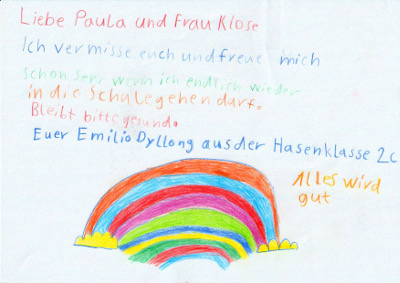 Liebe Paula und Frau Klose
Ich vermisse euch und freue mich
schon sehr wenn ich endlich wieder
in die Schule gehen darf.
Bleibt bitte gesund.
Euer Emilio Dyllong aus der Hasenklasse 2c
Alles wird
gut